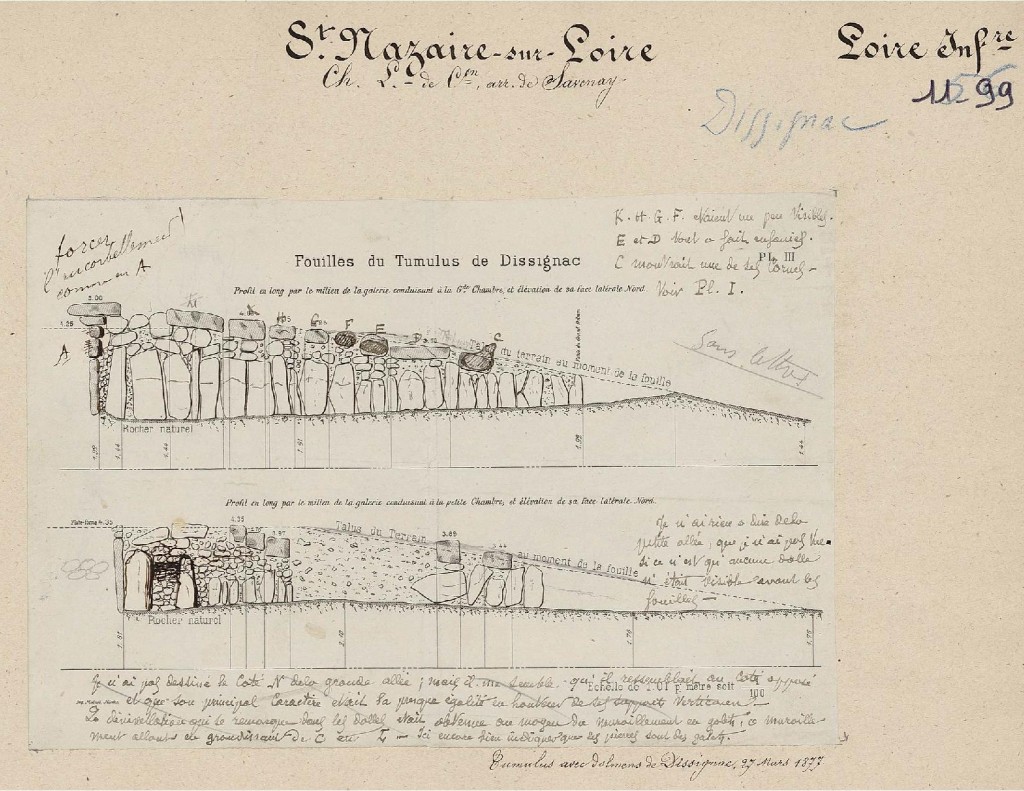 St. Nazaire-sur-Loire
Loire Infre
Ch. L. de Cn, arr. de Savenay.
11-99
Dissignac
K. et G. F. étaient un peu visibles.
E et D tout a fait enfouies.
C montrait une de ses cornes -
Voir Pl. I.
forcer
l'encorbellement
comme en A
Pl. III
Fouilles du Tumulus de Dissignac
Profil en long par le milieu de la galerie conduisant à la Gde Chambre, et élévation de sa face latérale Nord.
Sans lettres
3.00
K
H
G
F
E
D
C
4.25
A
Talus du terrain au moment de la fouille
Rocher naturel
1.44
1.44
Profil en long par le milieu de la galerie conduisant à la petite Chambre, et élévation de sa face latérale Nord.
4.35
Talus du Terrain
3.65
au moment de la fouille
Je n'ai rien a dire de la
petite allée, que je n'ai pas vue
si ce n'est qu'aucune dalle
n'était visible avant les
fouilles -
Rocher naturel
Je n'ai pas dessiné le Coté N de la grande allée ; mais il me semble qu'il ressemblait au Coté opposé
Echelle de 0.01 p. mètre soit 1/100
et que son principal Caractère était la presque égalité en hauteur de ses supports Verticaux -
La dénivellation qui se remarque dans les dalles était obtenue au moyen du muraillement en galets, ce muraille-
ment allant en grandissant de C en I - Ici encore bien indiquer que les pierres sont des galets.
Tumulus avec dolmens de Dissignac, 27 Mars 1877